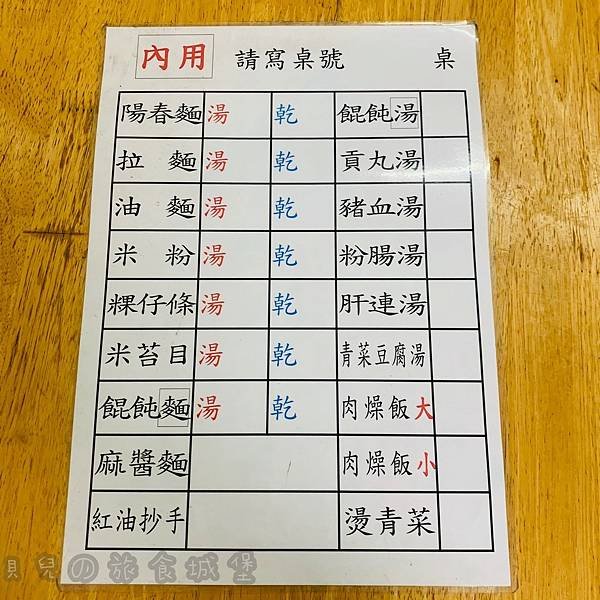 內用 請寫桌號 桌
陽春麵 湯 乾 餛飩湯
拉麵 湯 乾 貢丸湯
油麵 湯 乾 豬血湯
米粉 湯 乾 粉腸湯
粿仔條 湯 乾 肝連湯
米苔目 湯 乾 青菜豆腐湯
餛飩麵 湯 乾 肉燥飯大
麻醬麵 肉燥飯小
紅油抄手 燙青菜
貝兒の旅食城堡